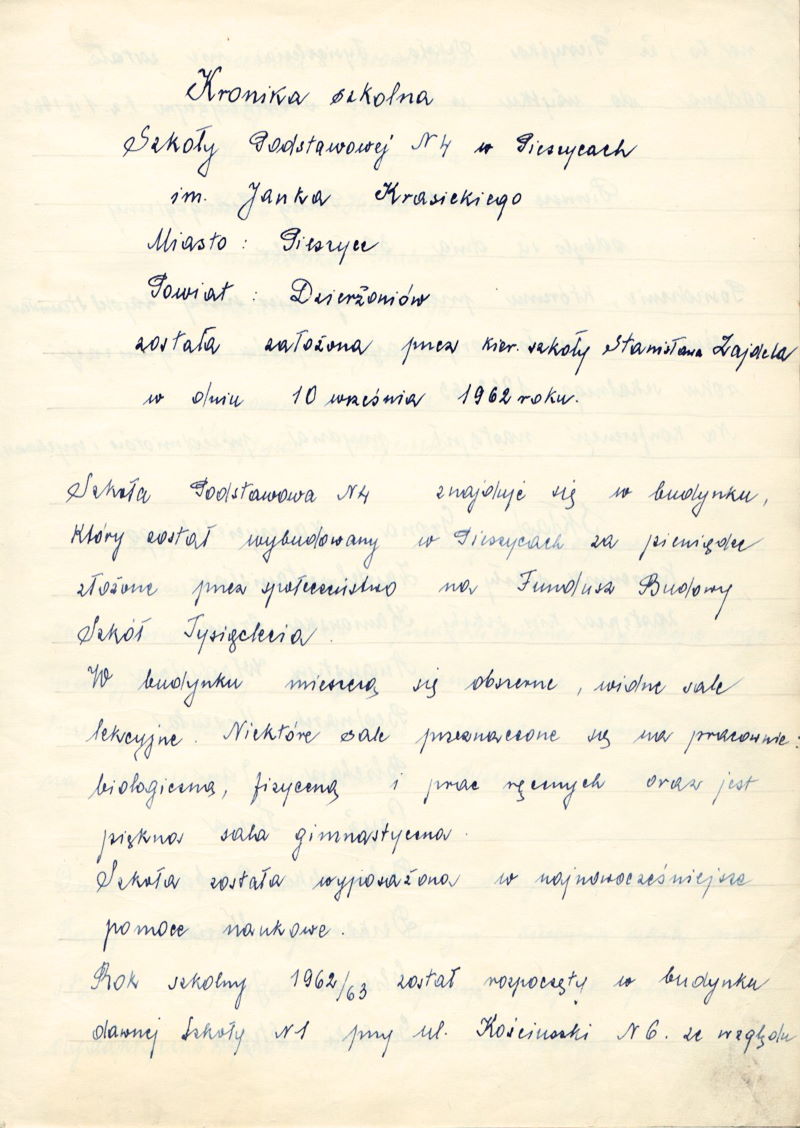 Kronika szkolna
Szkoły Podstawowej N4 w Pieszycach
im. Janka Krasickiego
Miasto : Pieszyce
Powiat : Dzierżoniów
została założona przez kier. szkoły Stanisława Zajdela
w dniu 10 września 1962 roku.
Szkoła Podstawowa N4 znajduje się w budynku,
który został wybudowany w Pieszycach za pieniądze
złożone przez społeczeństwo na Fundusz Budowy
Szkół Tysiąclecia.
W budynku mieszczą się obszerne, widne sale
lekcyjne. Niektóre sale przeznaczone są na pracownie:
biologiczną, fizyczną i prac ręcznych oraz jest
piękna sala gimnastyczna.
Szkoła została wyposażona w najnowocześniejsze
pomoce naukowe.
Rok szkolny 1962/63 został rozpoczęty w budynku
dawnej Szkoły N1 przy ul. Kościuszki N6. ze względu